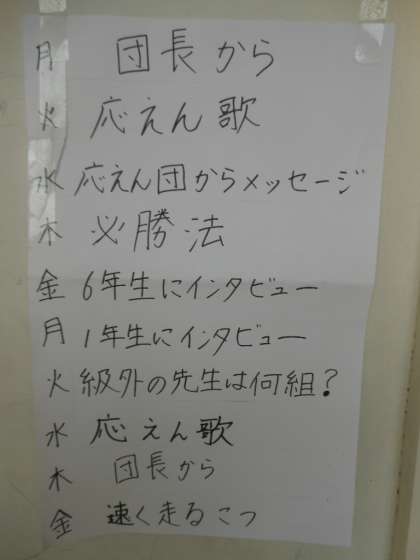 月 団長から
火 応えん歌
水 応えん団からメッセージ
木 必勝法
金 6年生にインタビュー
月 1年生にインタビュー
火 級外の先生は何組?
水 応えん歌
木 団長から
金 速く走るこつ